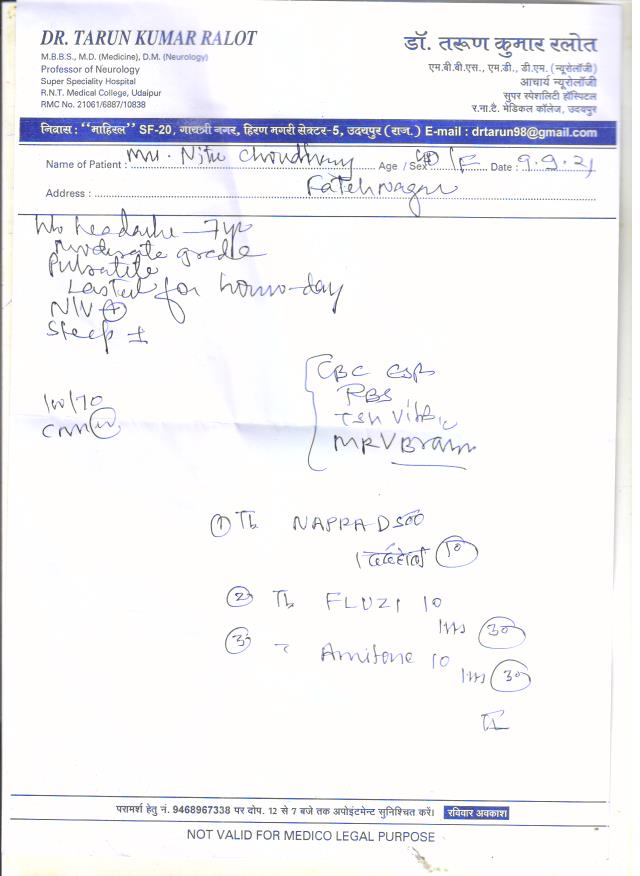 DR. TARUN KUMAR RALOT
M.B.B.S., M.D. (Medicine), D.M. (Neurology)
Professor of Neurology
Super Speciality Hospital
R.N.T. Medical College, Udaipur
RMC No. 21061/6887/10838
डॉ. तरूण कुमार रलोत
एम.बी.बी.एस., एम.डी., डी.एम. (न्यूरोलॉजी)
आचार्य न्यूरोलॉजी
सुपर स्पेशलिटी हॉस्पिटल
र.ना.टै. मेडिकल कॉलेज, उदयपुर
निवास : "माहिरल" SF-20, गायत्री नगर, हिरण मगरी सेक्टर-5, उदयपुर (राज.) E-mail : drtarun98@gmail.com
Name of Patient : Nitu Choudhary Age / Sex /F Date : 9.9.21
Address : Fatehnagar
headache - 7yr
Moderate grade
Pulsatile
Lasted for hours-day
N/V +
Sleep ±
100/70
CBC ESR
RBS
TSH Vit B12
MRV Brain
① Tb NAPRA D 500
1 दर्द होने पर 10
② Tb FLUZI 10
1HS 30
③ Amitone 10
1HS 30
परामर्श हेतु नं. 9468967338 पर दोप. 12 से 7 बजे तक अपोइंटमेन्ट सुनिश्चित करें। रविवार अवकाश
NOT VALID FOR MEDICO LEGAL PURPOSE